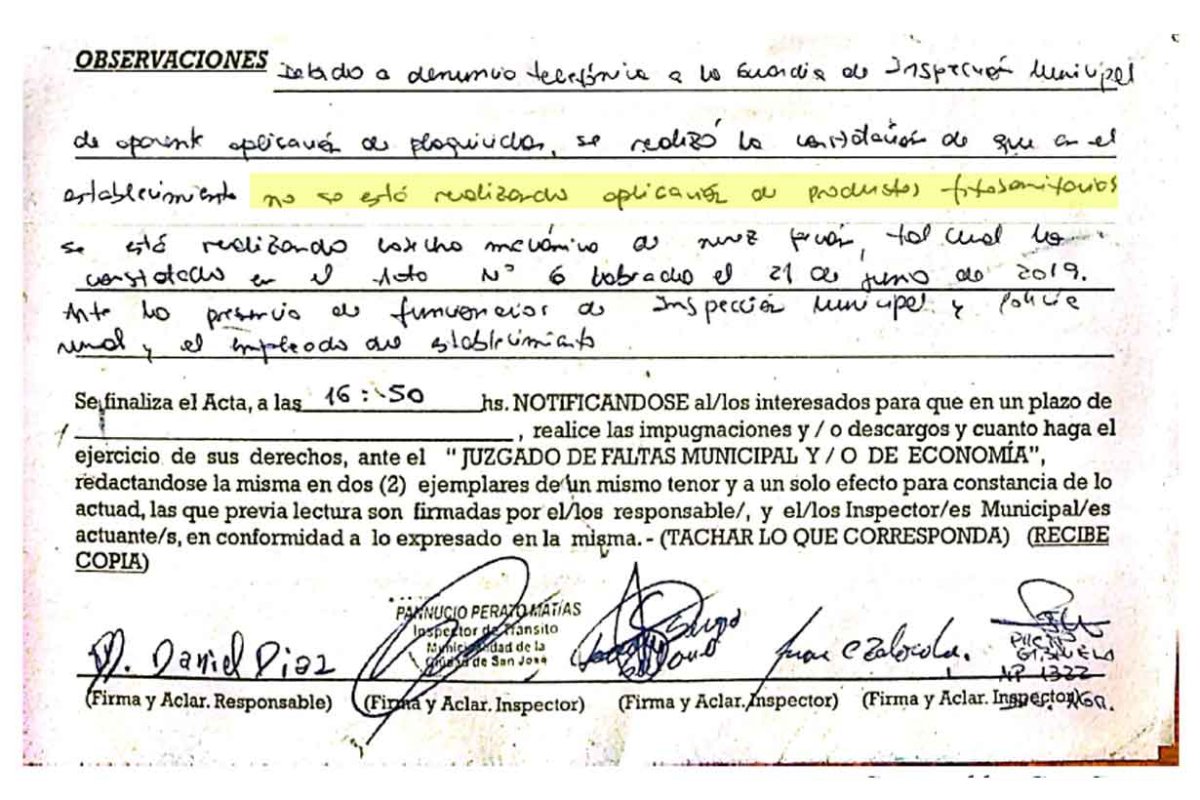 OBSERVACIONES Debido a denuncia telefónica a la Guardia de Inspección Municipal
de aparente aplicación de plaguicidas, se realizó la constatación de que en el
establecimiento no se está realizando aplicación de productos fitosanitarios
se está realizando cosecha mecánica de nuez pecán, tal cual lo
constatado en el Acta N° 6 labrada el 21 de junio de 2019.
Ante la presencia de funcionarios de Inspección Municipal y Policía
rural y el empleado del establecimiento
Se finaliza el Acta, a las 16:50 hs. NOTIFICANDOSE al/los interesados para que en un plazo de
, realice las impugnaciones y / o descargos y cuanto haga el
ejercicio de sus derechos, ante el " JUZGADO DE FALTAS MUNICIPAL Y / O DE ECONOMÍA",
redactandose la misma en dos (2) ejemplares de un mismo tenor y a un solo efecto para constancia de lo
actuad, las que previa lectura son firmadas por el/los responsable/, y el/los Inspector/es Municipal/es
actuante/s, en conformidad a lo expresado en la misma.- (TACHAR LO QUE CORRESPONDA) (RECIBE
COPIA)
PANNUCIO PERAZO MATÍAS
Inspector de Transito
Municipalidad de la
Ciudad de San José
D. Daniel Diaz
NP 1322
(Firma y Aclar. Responsable) (Firma y Aclar. Inspector) (Firma y Aclar. Inspector) (Firma y Aclar. Inspector)